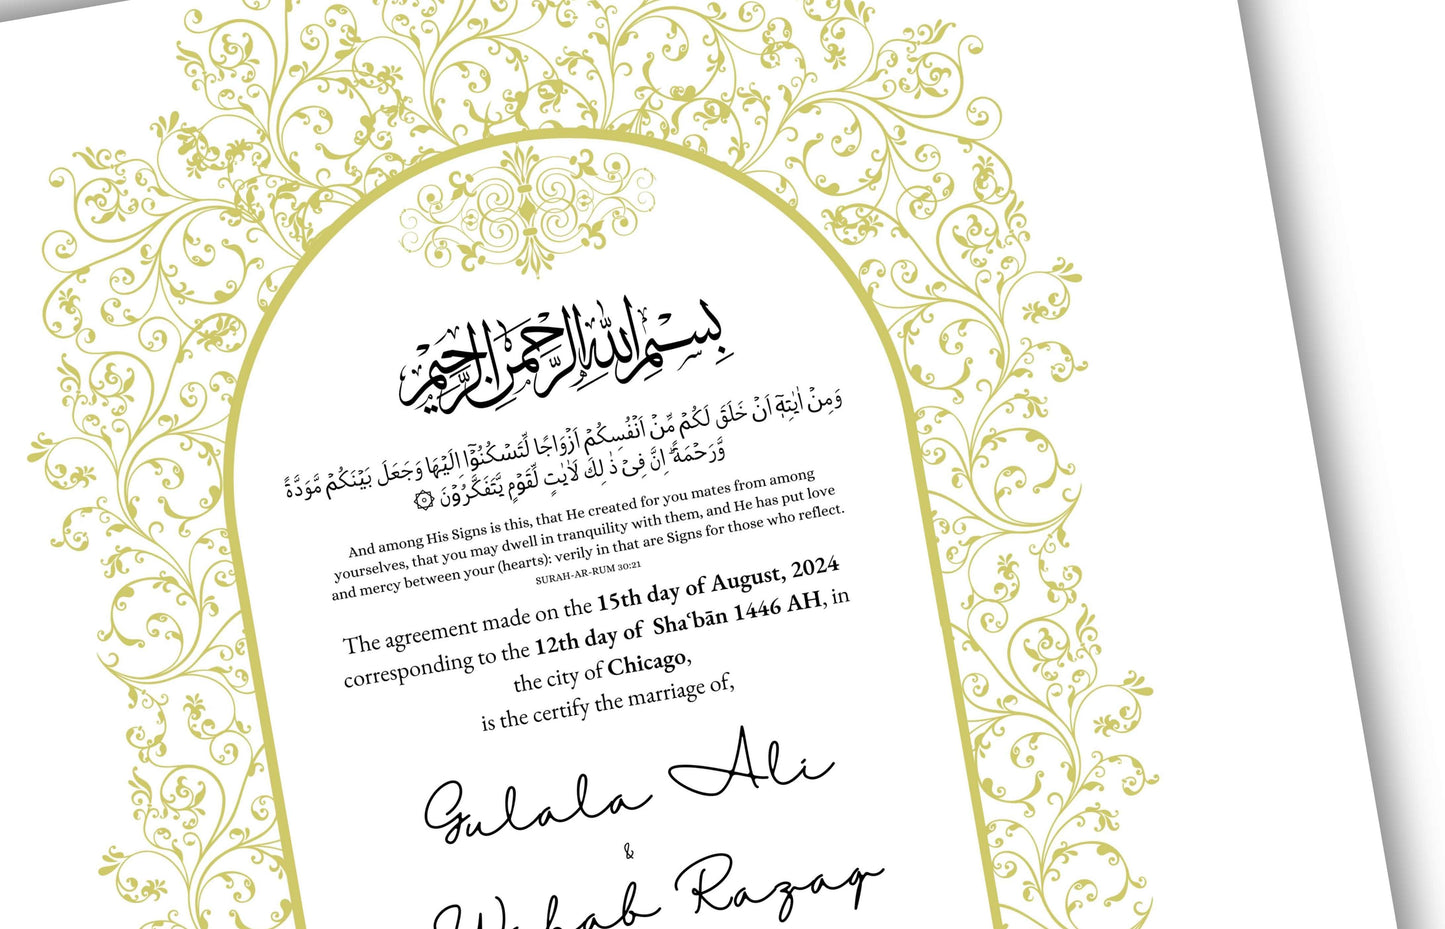 بِسْمِ اللهِ الرَّحْمٰنِ الرَّحِيْمِ
وَمِنْ اٰيٰتِهٖۤ اَنْ خَلَقَ لَكُمْ مِّنْ اَنْفُسِكُمْ اَزْوَاجًا لِّتَسْكُنُوْۤا اِلَيْهَا وَجَعَلَ بَيْنَكُمْ مَّوَدَّةً
وَّرَحْمَةً ؕ اِنَّ فِىْ ذٰ لِكَ لَاٰيٰتٍ لِّقَوْمٍ يَّتَفَكَّرُوْنَ ۞
And among His Signs is this, that He created for you mates from among
yourselves, that you may dwell in tranquility with them, and He has put love
and mercy between your (hearts): verily in that are Signs for those who reflect.
SURAH-AR-RUM 30:21
The agreement made on the 15th day of August, 2024
corresponding to the 12th day of Shaʿbān 1446 AH, in
the city of Chicago,
is the certify the marriage of,
Gulala Ali
&
Wahab Razaq